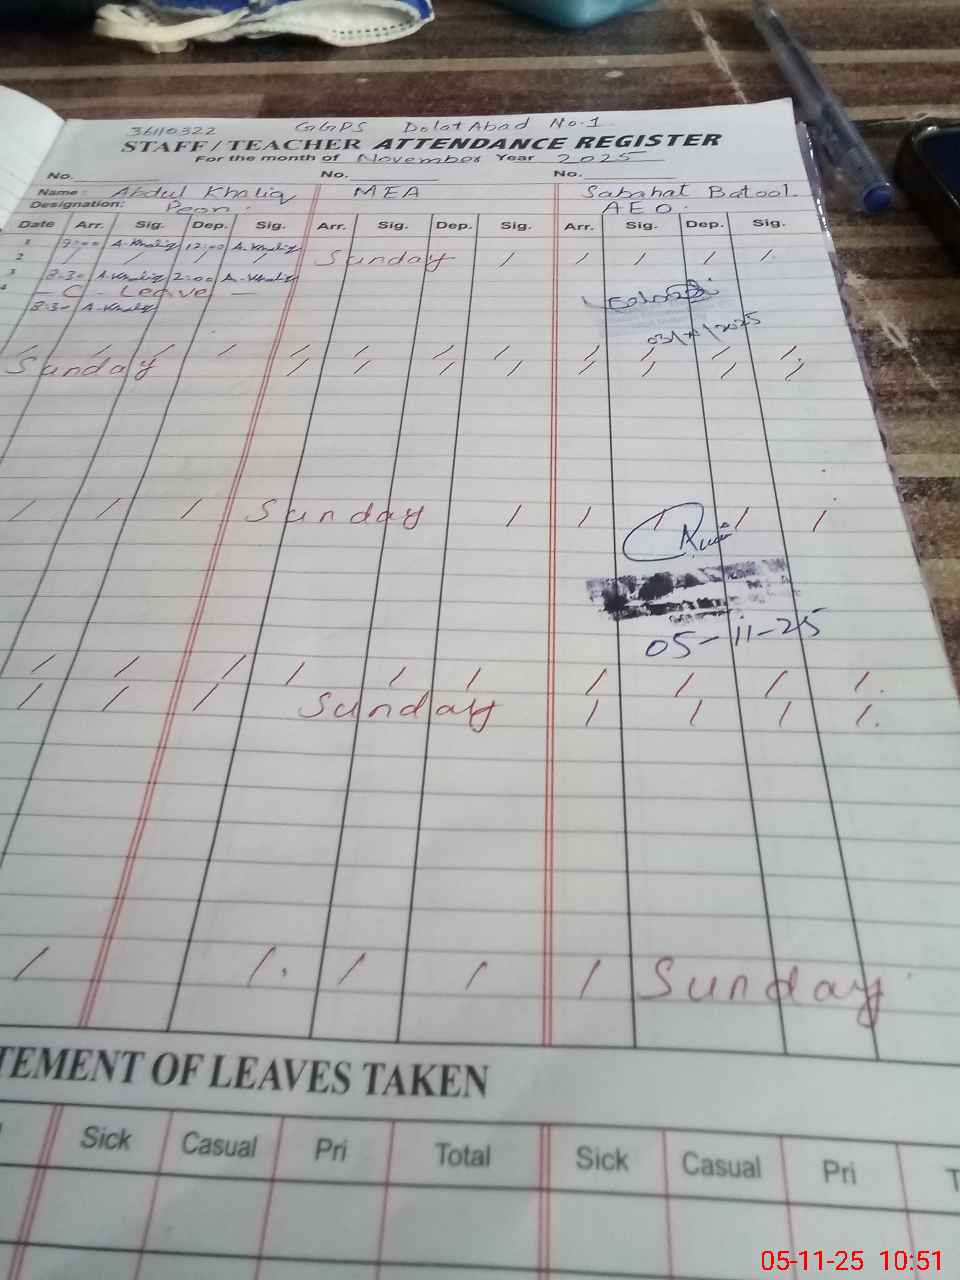 36110322 GGPS Dolat Abad No.1
STAFF/TEACHER ATTENDANCE REGISTER
For the month of November Year 2025
No. No. No.
Name: Abdul Khaliq MEA Sabahat Batool.
Designation: Peon. AEO.
Date Arr. Sig. Dep. Sig. Arr. Sig. Dep. Sig. Arr. Sig. Dep. Sig.
1 9:00 A.Khaliq 12:00 A.Khaliq
2 / / / / Sunday / / / / /.
3 8:30 A.Khaliq 2:00 A.Khaliq
4 - C - Leave -
8:30 A.Khaliq
/ / / / / / / / / / / /.
Sunday / / / / / / / /
/ / / Sunday / / / / /
05-11-25
/ / / / / / / / / /.
/ / / Sunday / / / /.
/ /. / / / Sunday
TEMENT OF LEAVES TAKEN
Sick Casual Pri Total Sick Casual Pri T
05-11-25 10:51